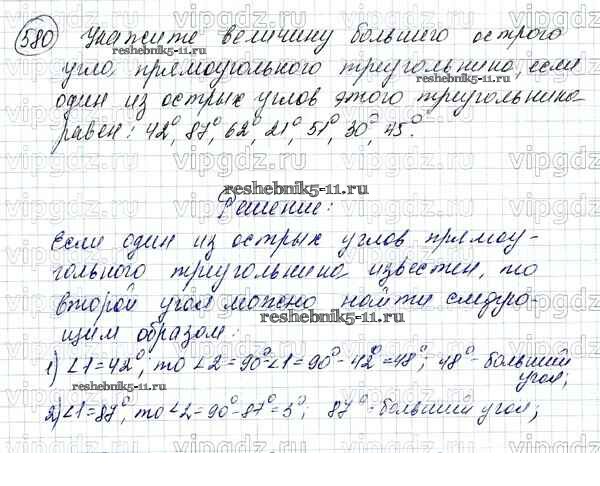 580 Укажите величину большего острого
угла прямоугольного треугольника, если
один из острых углов этого треугольника
равен: 42°, 87°, 62°, 21°, 51°, 30°, 45°.
reshebnik5-11.ru
Решение:
Если один из острых углов прямоу-
гольного треугольника известен, то
второй угол можно найти следую-
щим образом:
1) ∠1=42°, то ∠2=90°-∠1=90°-42°=48°; 48° - больший
угол;
2) ∠1=87°, то ∠2=90°-87°=3°; 87° - больший угол;